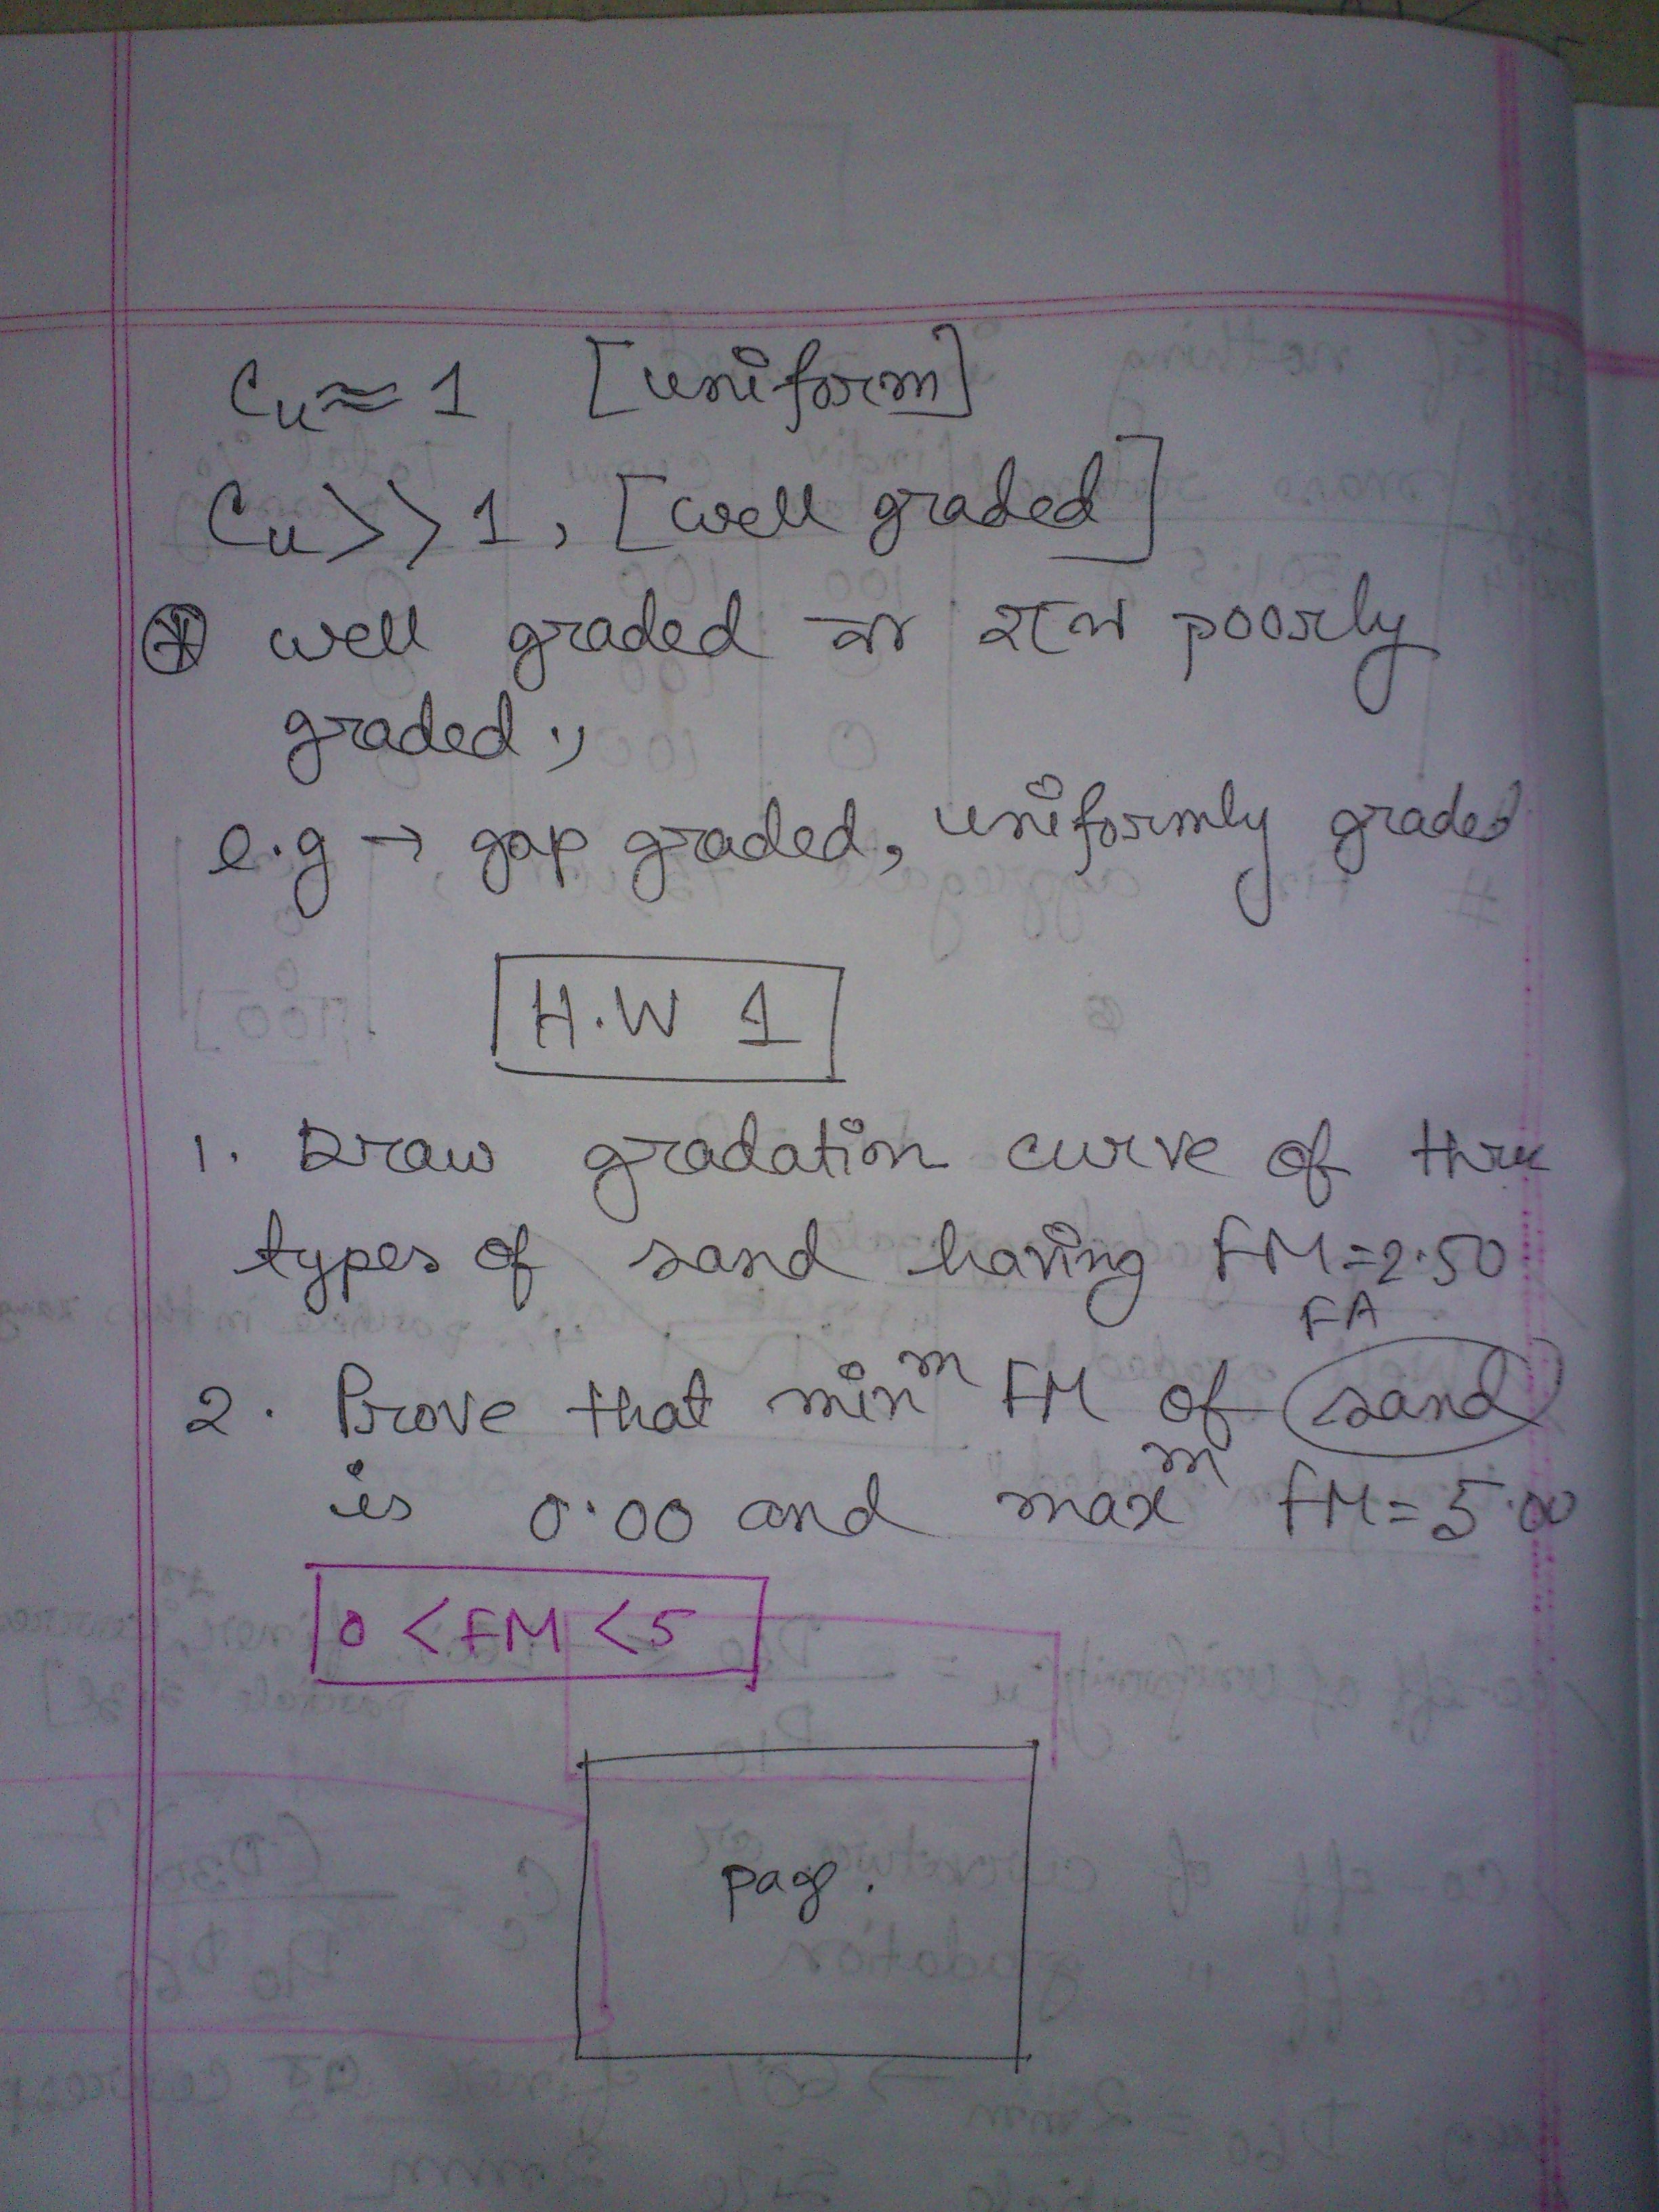 Cu ≈ 1 [uniform]
Cu >> 1, [well graded]
⊛ well graded না হলে poorly
graded.,
e.g → gap graded, uniformly graded
H.W 1
1. Draw gradation curve of three
types of sand having FM = 2.50
FA
2. Prove that minᵐ FM of sand
is 0.00 and maxᵐ FM = 5.00
0 < FM < 5
page.